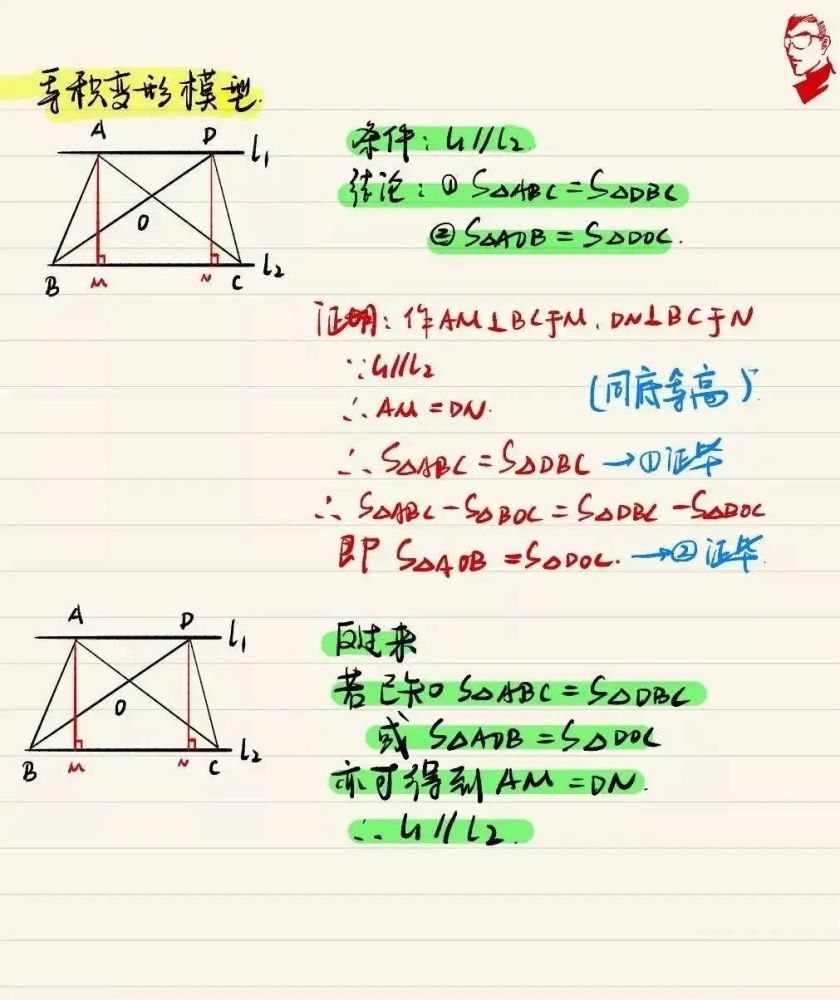 等积变形模型.
A D l₁
O
B M N C l₂
条件: l₁∥l₂
结论: ① S△ABC=S△DBC
② S△AOB=S△DOC.
证明: 作AM⊥BC于M, DN⊥BC于N
∵l₁∥l₂
∴AM=DN. (同底等高)
∴S△ABC=S△DBC →①证毕
∴S△ABC-S△BOC=S△DBC-S△BOC
即S△AOB=S△DOC. →②证毕.
A D l₁
O
B M N C l₂
反过来
若已知 S△ABC=S△DBC
或 S△AOB=S△DOC
亦可得到AM=DN.
∴l₁∥l₂.